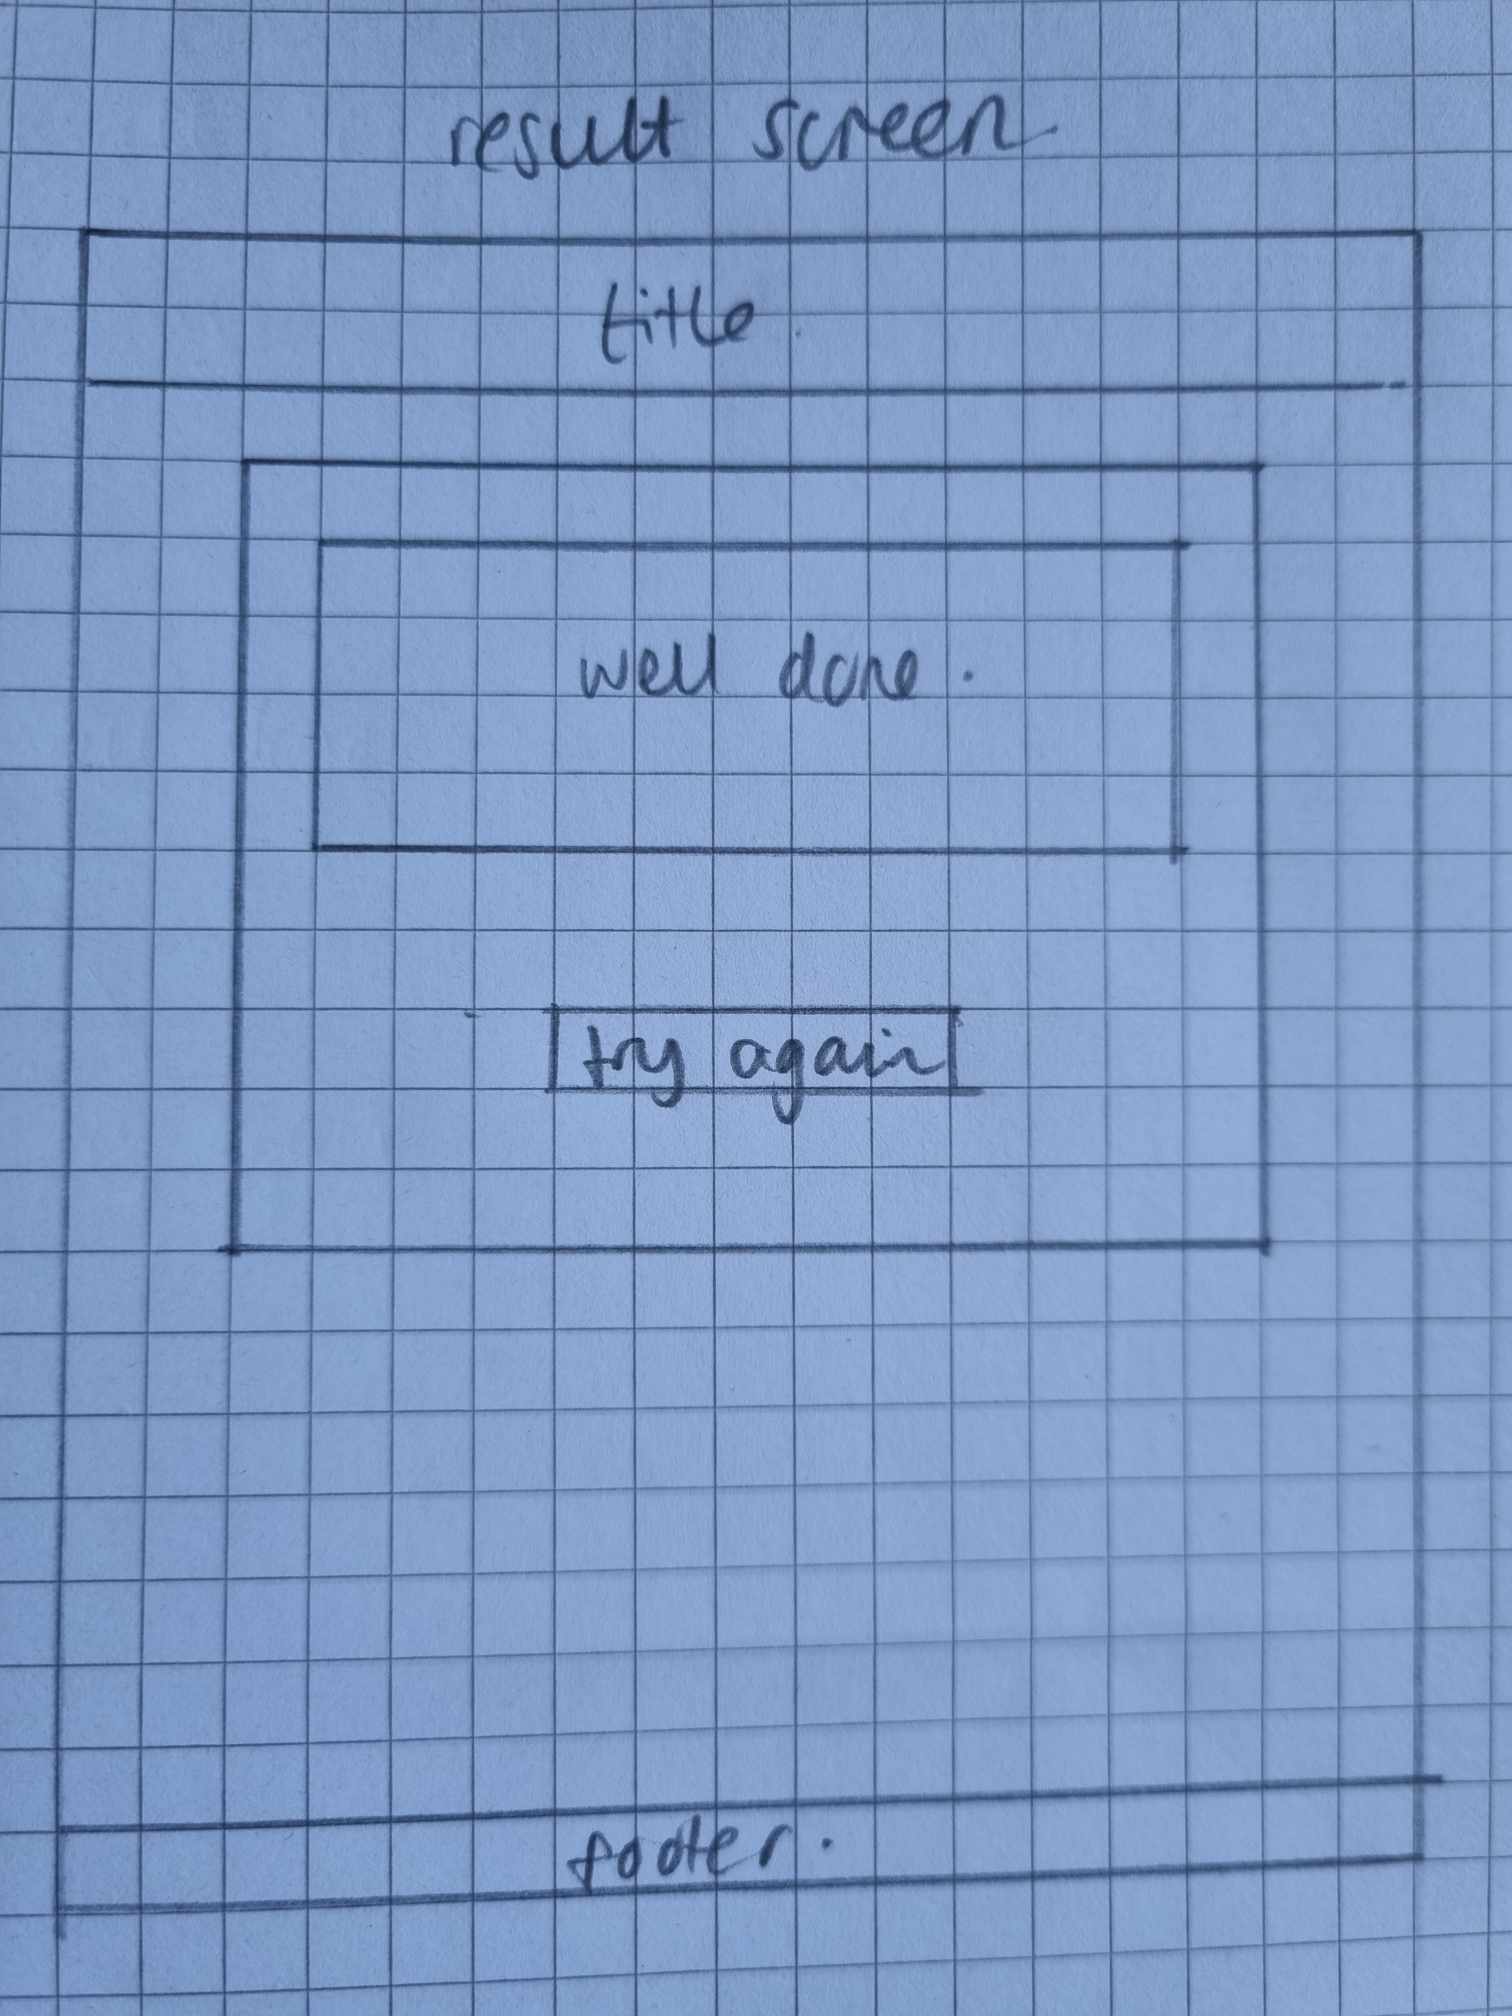 result screen
title.
well done.
try again
footer.